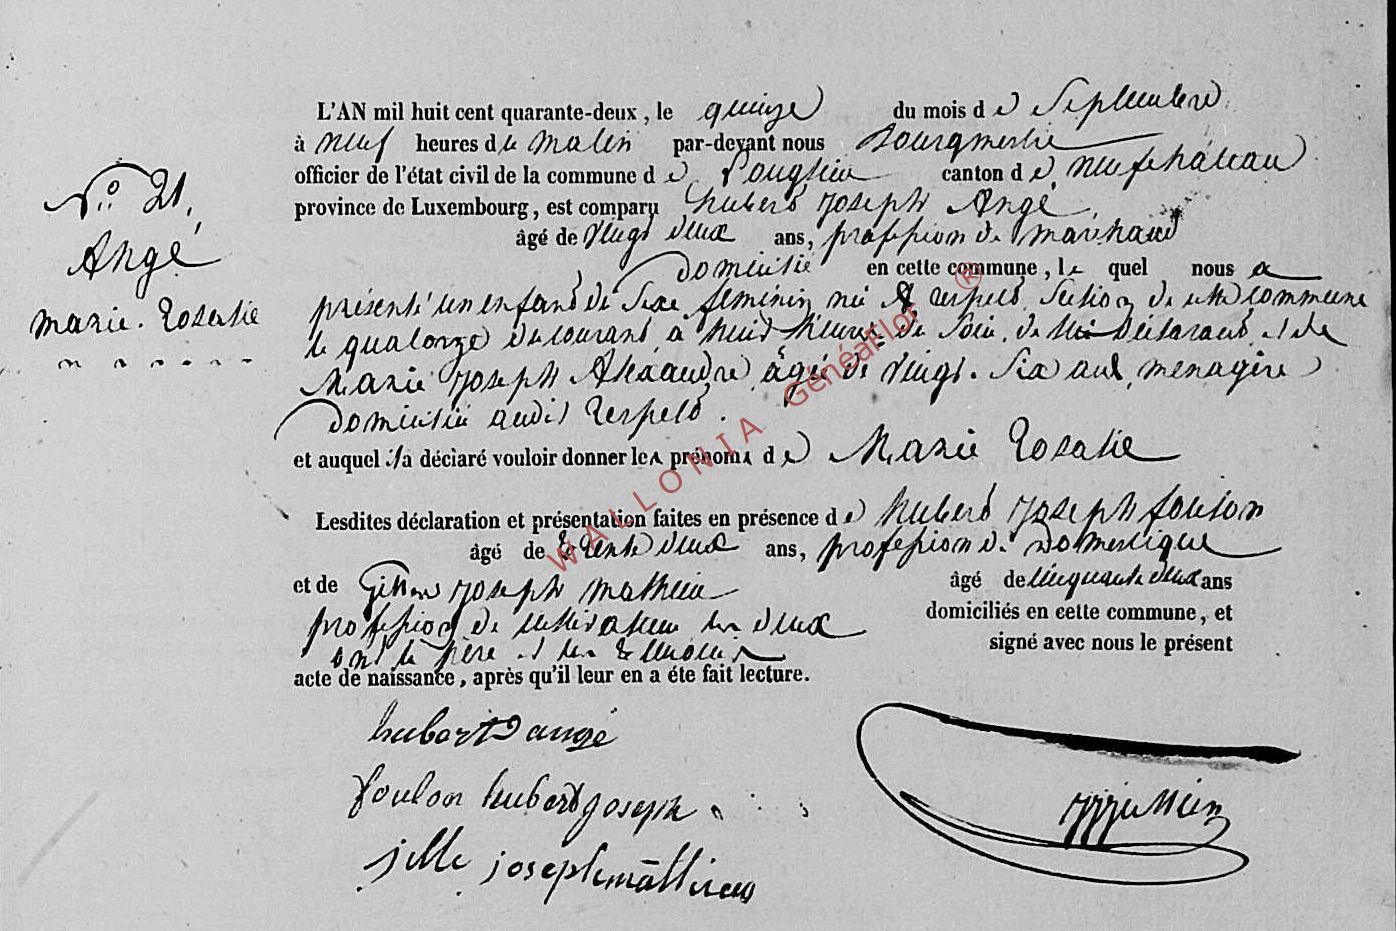 N.° 21,
Angé
Marie Rosalie
L'AN mil huit cent quarante-deux, le quinze du mois de Septembre
à neuf heures du matin par-devant nous Bourgmestre
officier de l'état civil de la commune de Longlier canton de neufchâteau
province de Luxembourg, est comparu hubert Joseph Angé,
âgé de vingt deux ans, profession de marchand
domicilié en cette commune, le quel nous a
présenté un enfant de Sexe féminin né à respelt Section de cette commune
le quatorze du courant à huit heures de Soir, de lui Déclarant et de
Marie Joseph Alexandre âgée de vingt-Six ans, ménagère
domiciliée audit respelt.
et auquel il a déclaré vouloir donner les prénoms de Marie Rosalie
Lesdites déclaration et présentation faites en présence de hubert Joseph foulon
âgé de trente deux ans, profession de Domestique
et de Joseph Mathieu âgé de cinquante deux ans
profession de cultivateur les deux domiciliés en cette commune, et
ont le père et les témoins signé avec nous le présent
acte de naissance, après qu'il leur en a éte fait lecture.
hubert angé
foulon hubert joseph
jille joseph mathieu
WALLONIA Généaflor ®